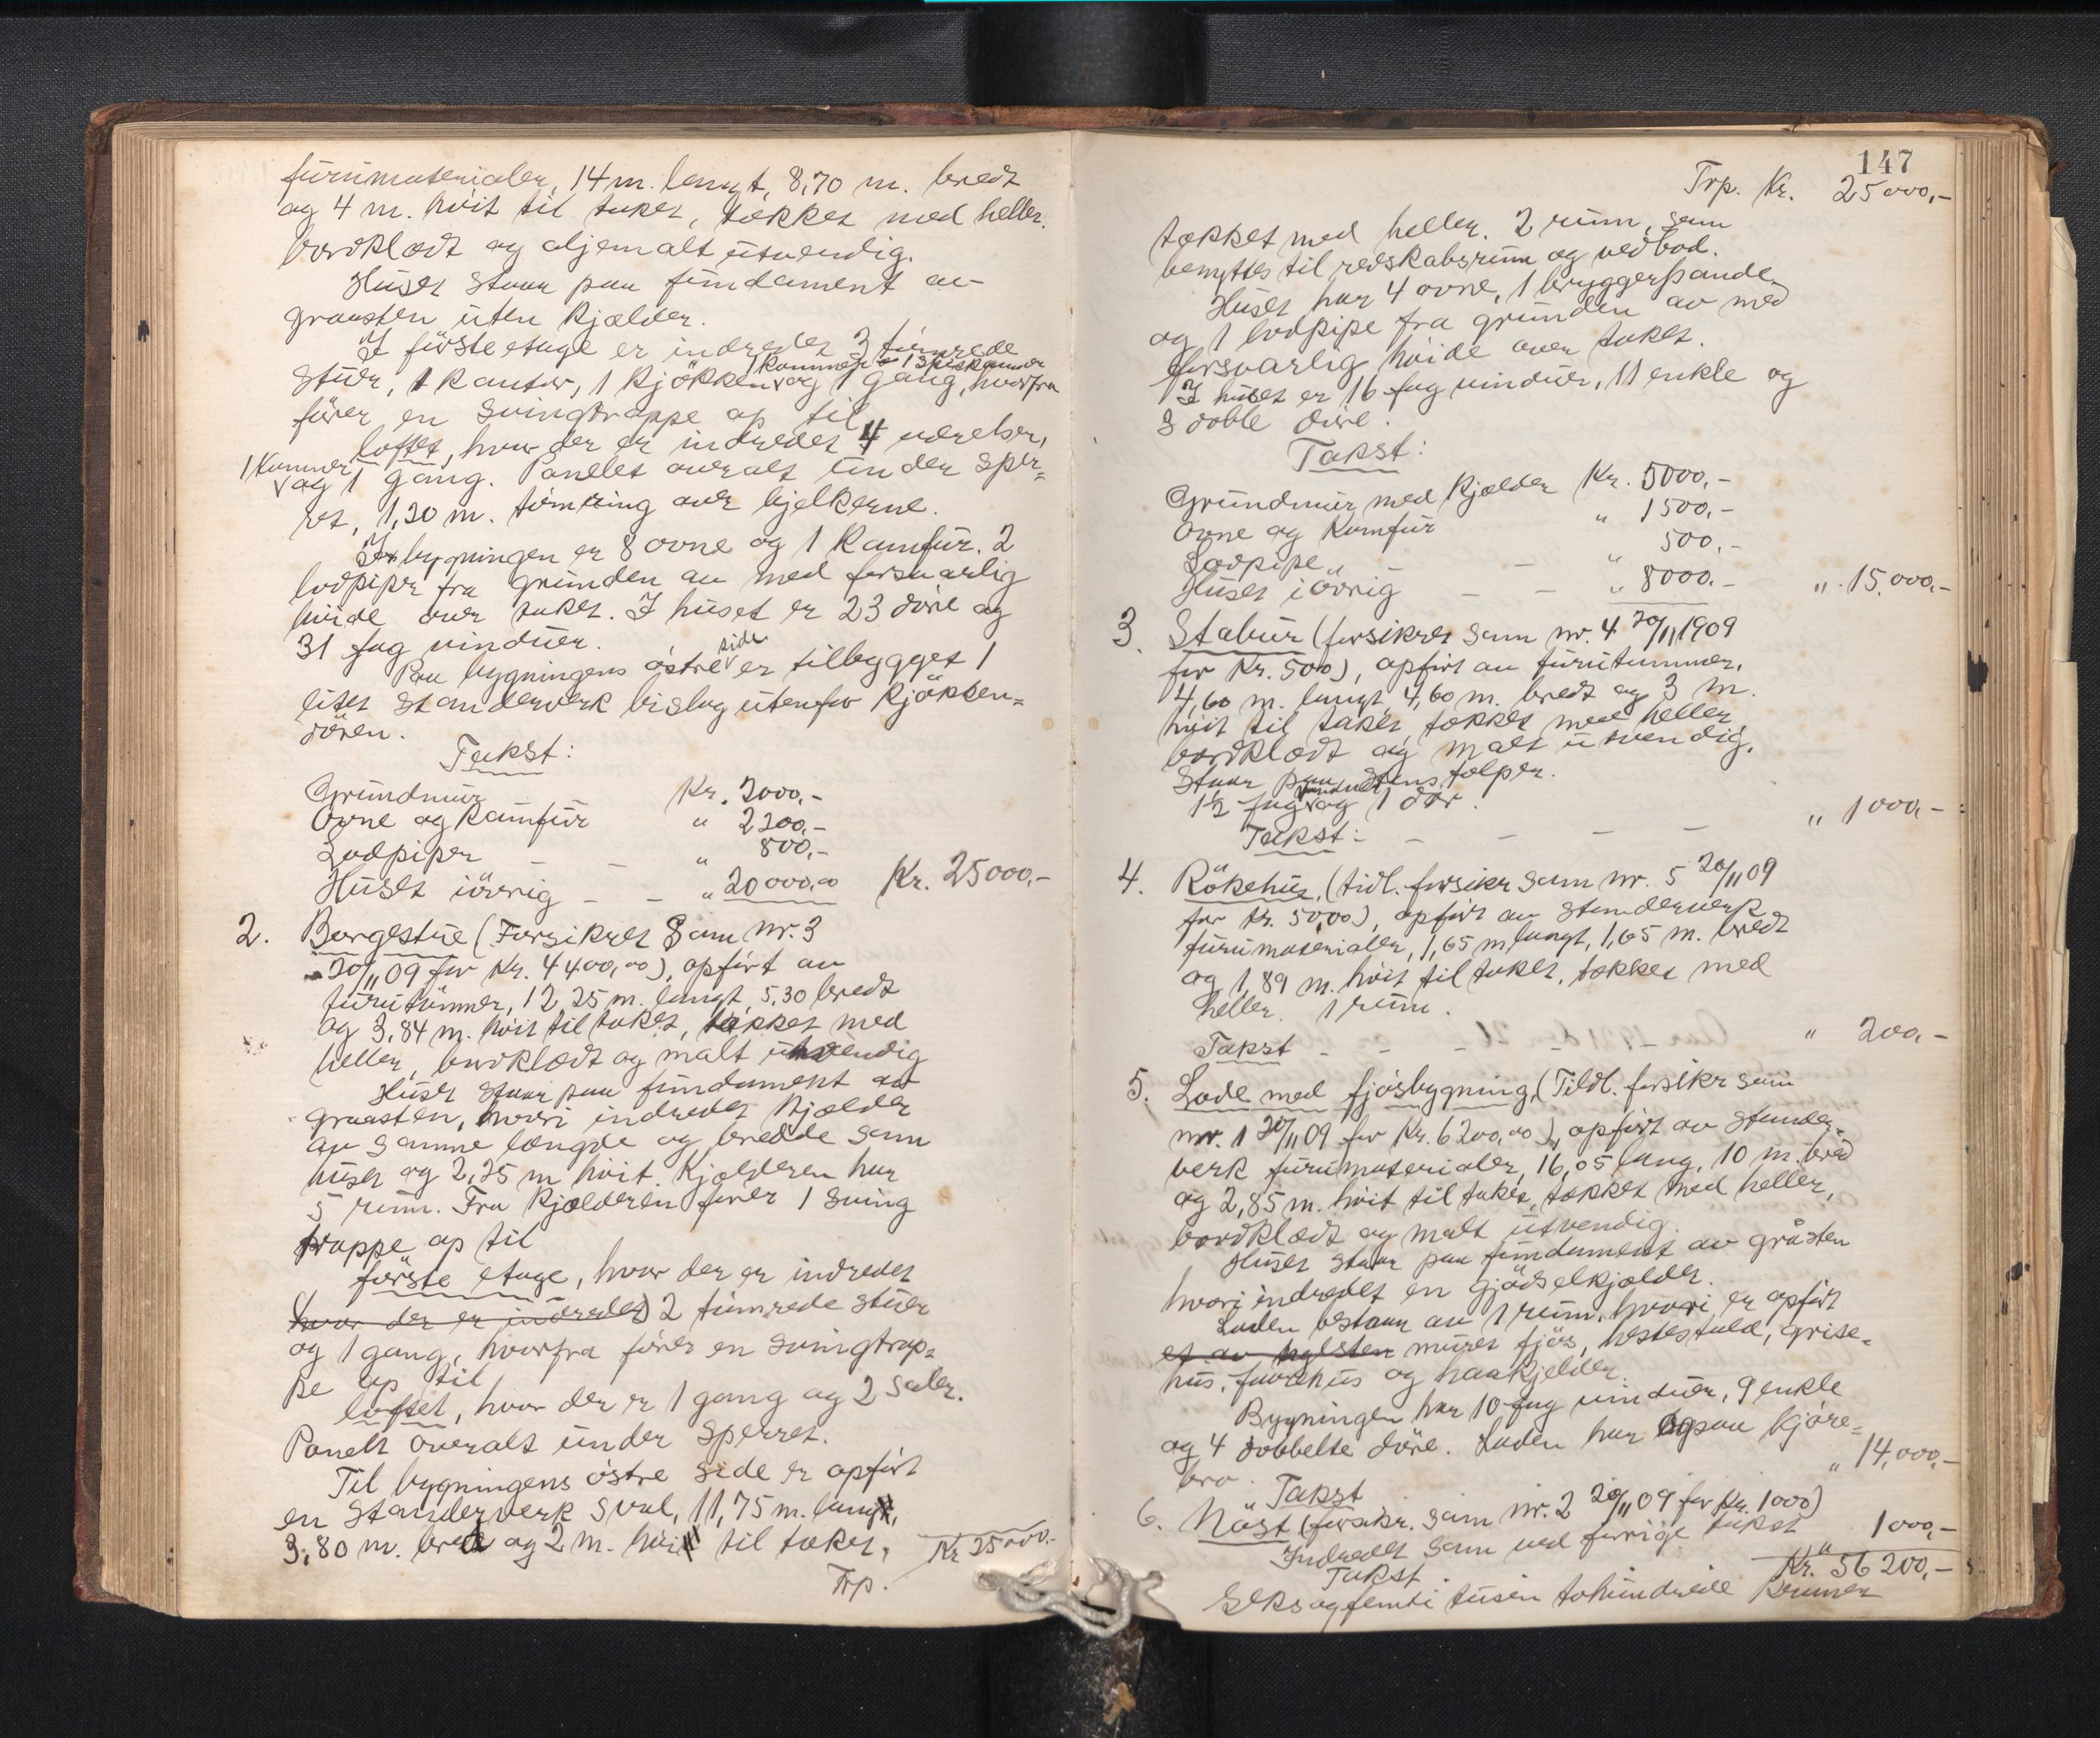 furumaterialer, 14 m. langt, 8,70 m. bredt
og 4 m. höit til taket, tækket med heller.
bordklædt og oljemalt utvendig.
Huset staar paa fundament av
graasten uten kjælder.
I förste etage er indredet 3 tömrede
1 kammer 1 spiskammer
stuer, 1 kontor, 1 kjökken og 1 gang, hvorfra
förer en svingtrappe op til
loftet, hvor der er indredet 4 værelser,
1 kammer
og 1 gang. Panelet overalt under sper=
ret, 1,30 m. tömring over bjelkerne.
I bygningen er 8 ovne og 1 komfur. 2
lodpiper fra grunden av med forsvarlig
höide over taket. I huset er 23 döre og
31 fag vinduer.
side
Paa bygningens östre er tilbygget 1
litet standerverk bislag utenfor kjökken=
dören.
Takst:
Grundmur Kr. 2000,-
Ovne og Komfur " 2200,-
Lodpiper - - " 800,-
Huset iövrig - - " 20000,00 Kr. 25000,-
2. Borgestue (Forsikret Som nr. 3
20/11 09 for Kr. 4400,00), opfört av
furutömmer, 12,25 m. langt, 5,30 bredt
og 3,84 m. höit til taket, tækket med
heller, bordklædt og malt utvendig
Huset staar paa fundament av
graasten, hvori indredet kjælder
av samme længde og bredde som
huset og 2,25 m höit. Kjælderen har
5 rum. Fra kjælderen förer 1 sving
trappe op til
förste etage, hvor der er indredet
hvor der er indredet) 2 tömrede stuer
og 1 gang, hvorfra förer en svingtrap=
pe op til
loftet, hvor der er 1 gang og 2 saler.
Panelt overalt under sperret.
Til bygningens östre side er opfört
en standerverk sval, 11,75 m. lang,
3,80 m. bred og 2 m. höi til taket, Kr 25000.-
Trp.
147
Trp. Kr. 25000,-
tækket med heller. 2 rum, som
benyttes til redskabsrum og vedbod.
Huset har 4 ovne, 1 bryggerpande
og 1 lodpipe fra grunden av med
forsvarlig höide over taket.
I huset er 16 fag vinduer, 11 enkle og
3 doble döre.
Takst:
Grundmur med kjælder Kr. 5000,-
Ovne og Komfur " 1500,-
Lodpipe " - - 500,-
Huset iövrig - - " 8000.- " 15,000,-
3. Stabur (forsikret som nr. 4 20/11 1909
for Kr. 500), opfört av furutømmer,
4,60 m. langt, 4,60 m. bredt og 3 m.
höit til taket, tækket med heller,
bordklædt og malt utvendig.
Staar paa stenstolper.
vinduer
1½ fag og 1 dör.
Takst: - - - - " 1000,-
4. Rökehus, (tidl. forsikr som nr. 5 20/11 09
for kr. 50,00), opfört av standerverk
furumaterialer, 1,65 m langt, 1,65 m. bredt
og 1,89 m. höit til taket, tækket med
heller. 1 rum.
Takst - - - - " 200,-
5. Lade med fjösbygning, (Tidl. forsikr som
nr. 1 20/11 09 for Kr. 6200,00), opfört av stander=
verk furumaterialer, 16,05 lang, 10 m. bred
og 2,85 m. höit til taket, tækket med heller,
bordklædt og malt utvendig.
Huset staar paa fundament av gråsten
hvori indredet en gjödselkjælder.
Laden bestaar av 1 rum, hvori er opfört
et av muret fjös, hestestald, grise=
hus, faarehus og haakjelder.
Bygningen har 10 fag vinduer, 9 enkle
og 4 dobbelte döre. Laden har ogsaa kjöre=
bro. " 14,000,-
Takst
6. Nöst (forsikr. som nr. 2 20/11 09 for Kr. 1000)
Indredet som ved forrige takst
Takst. " 1000,-
Kr. 56200,-
Seks og femti tusen tohundrede kroner